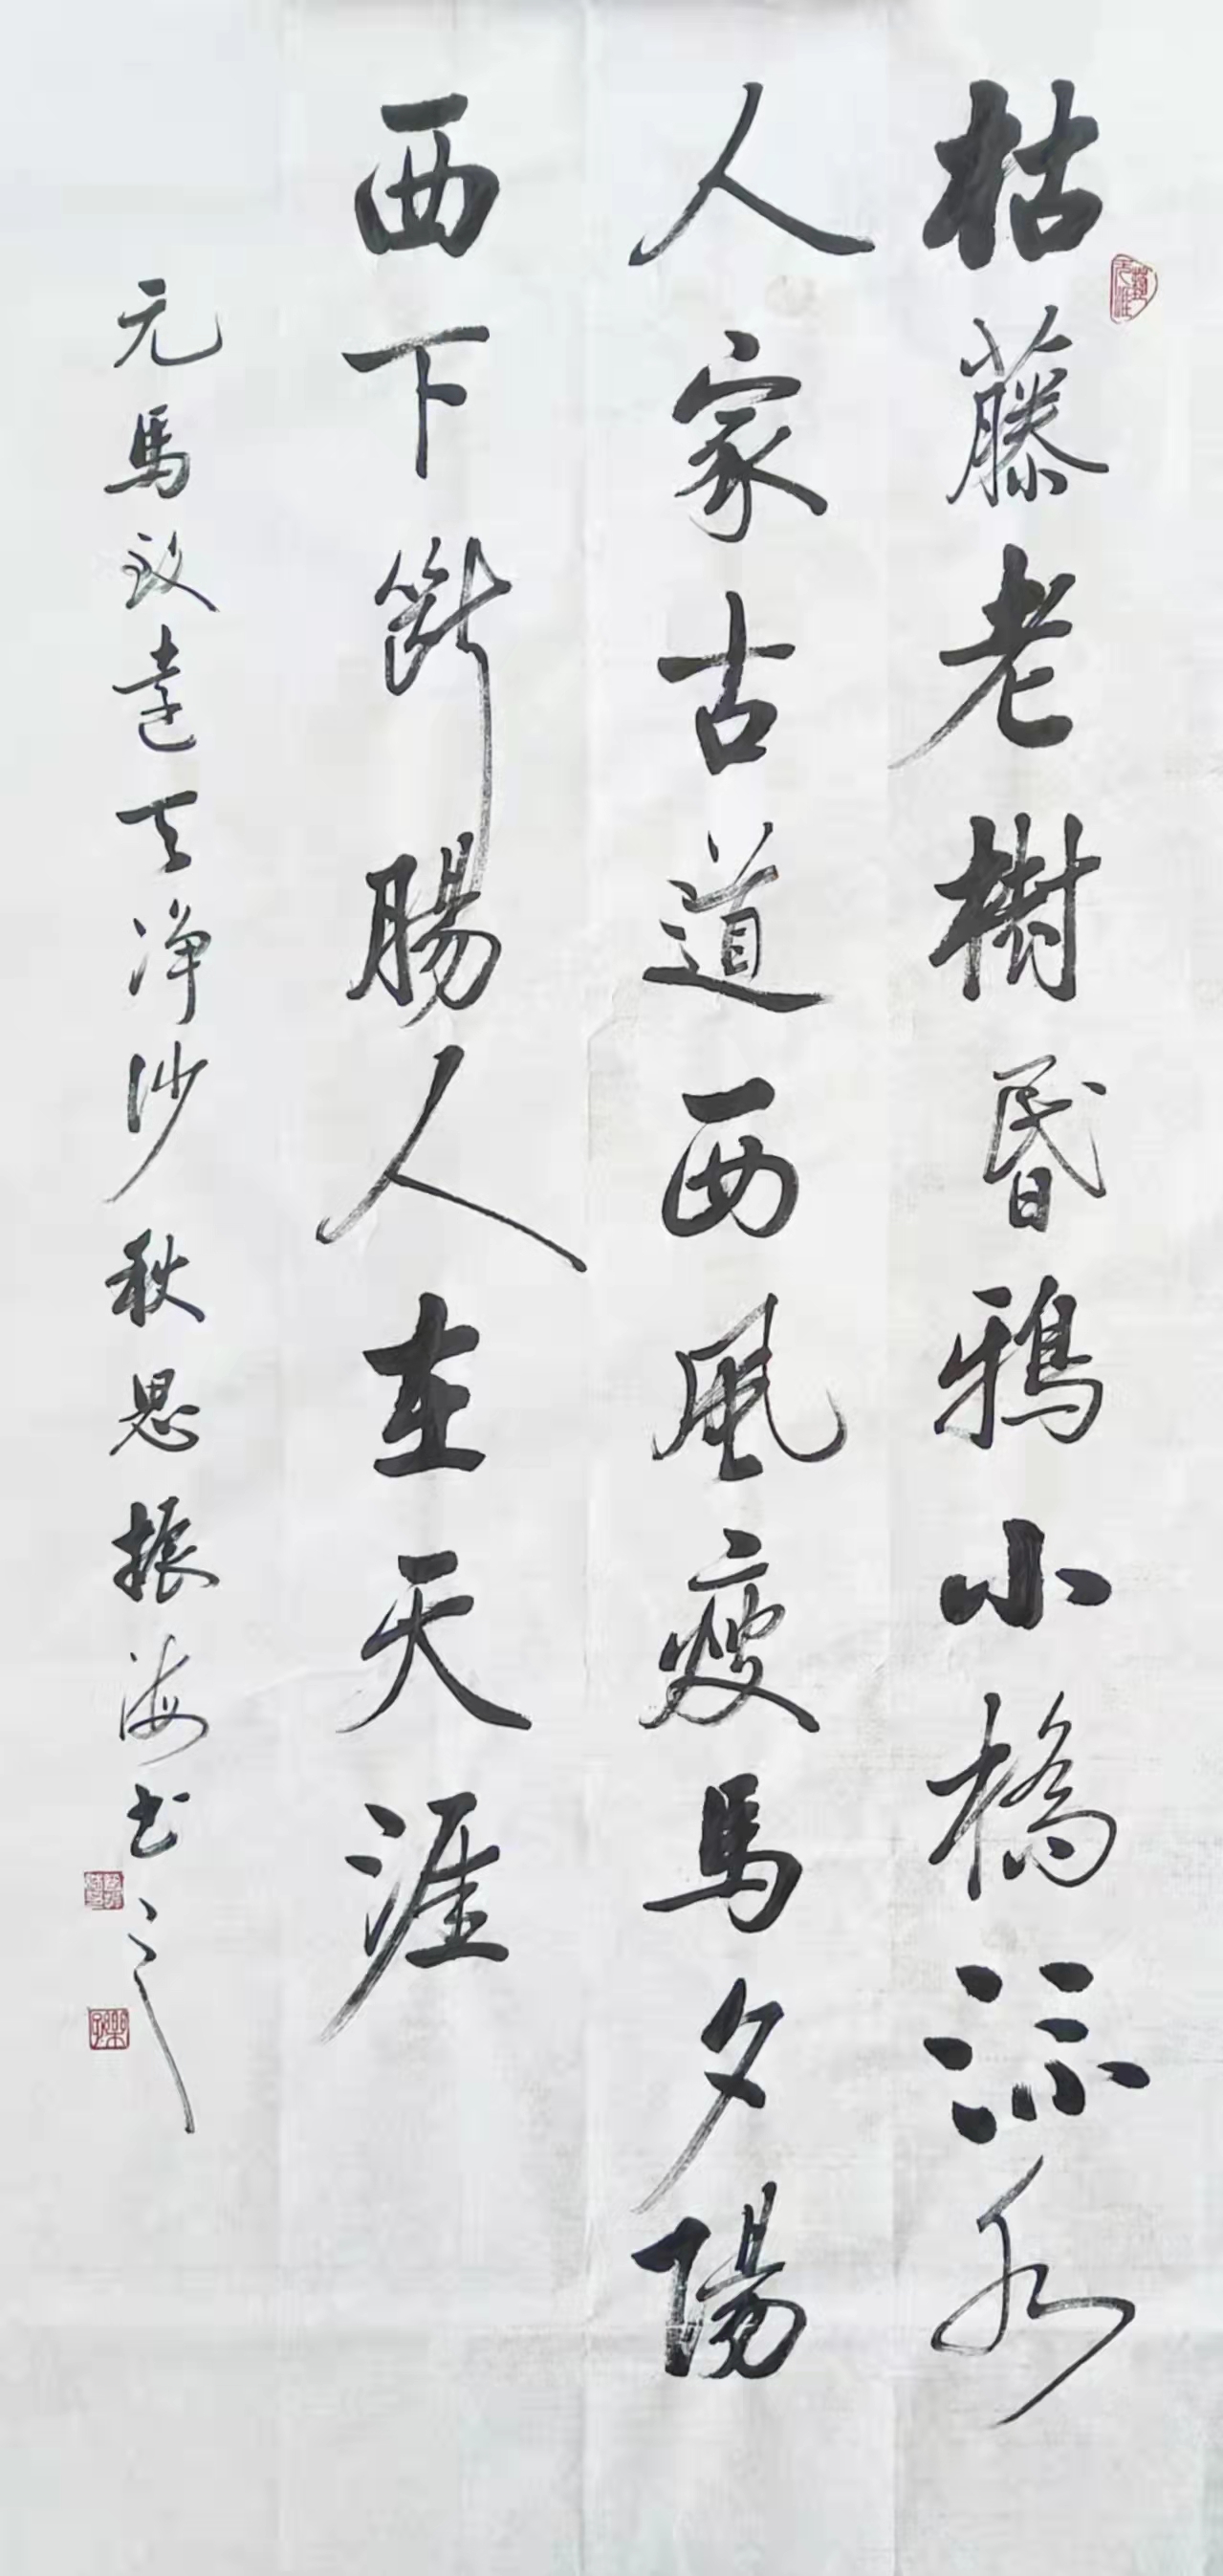 枯藤老樹昏鴉小橋流水
人家古道西風瘦馬夕陽
西下斷腸人在天涯
元馬致遠天净沙秋思振海书之